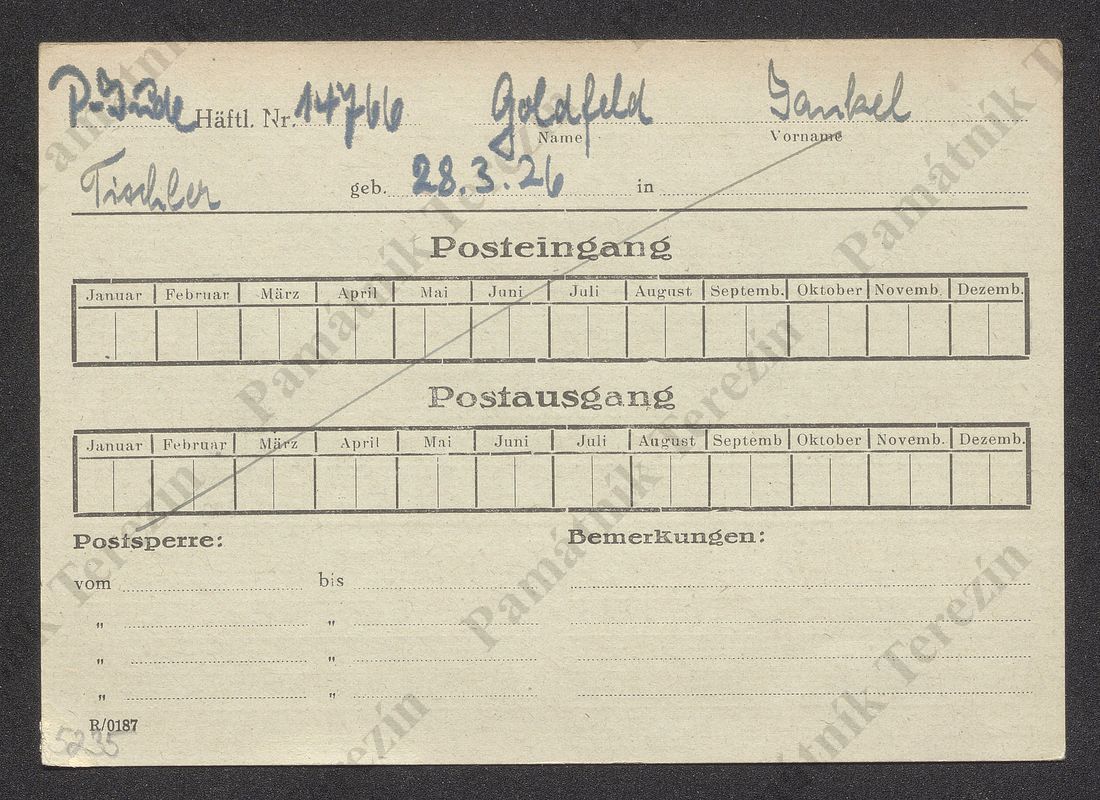 P-Jude Häftl. Nr. 14766 Goldfeld Jankel
Name Vorname
Tischler geb. 28.3.26 in
Posteingang
Januar Februar März April Mai Juni Juli August Septemb. Oktober Novemb. Dezemb.
Postausgang
Januar Februar März April Mai Juni Juli August Septemb Oktober Novemb. Dezemb.
Postsperre: Bemerkungen:
vom bis
" "
" "
" "
R/0187
5235
Památník Terezín